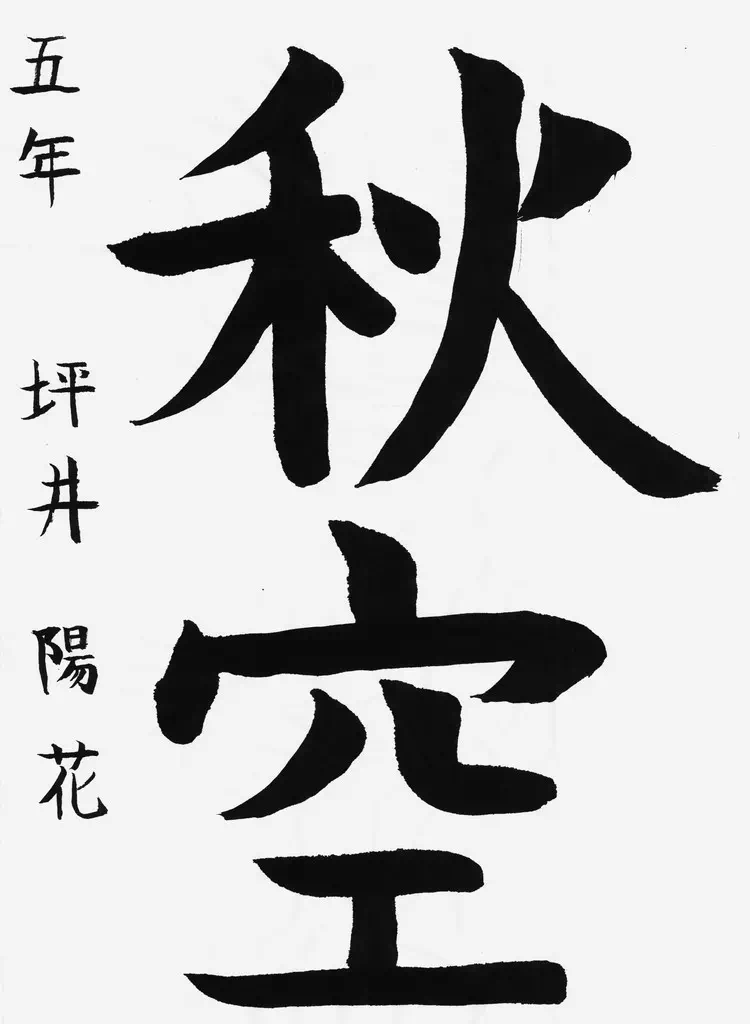 秋空
五年 坪井陽花